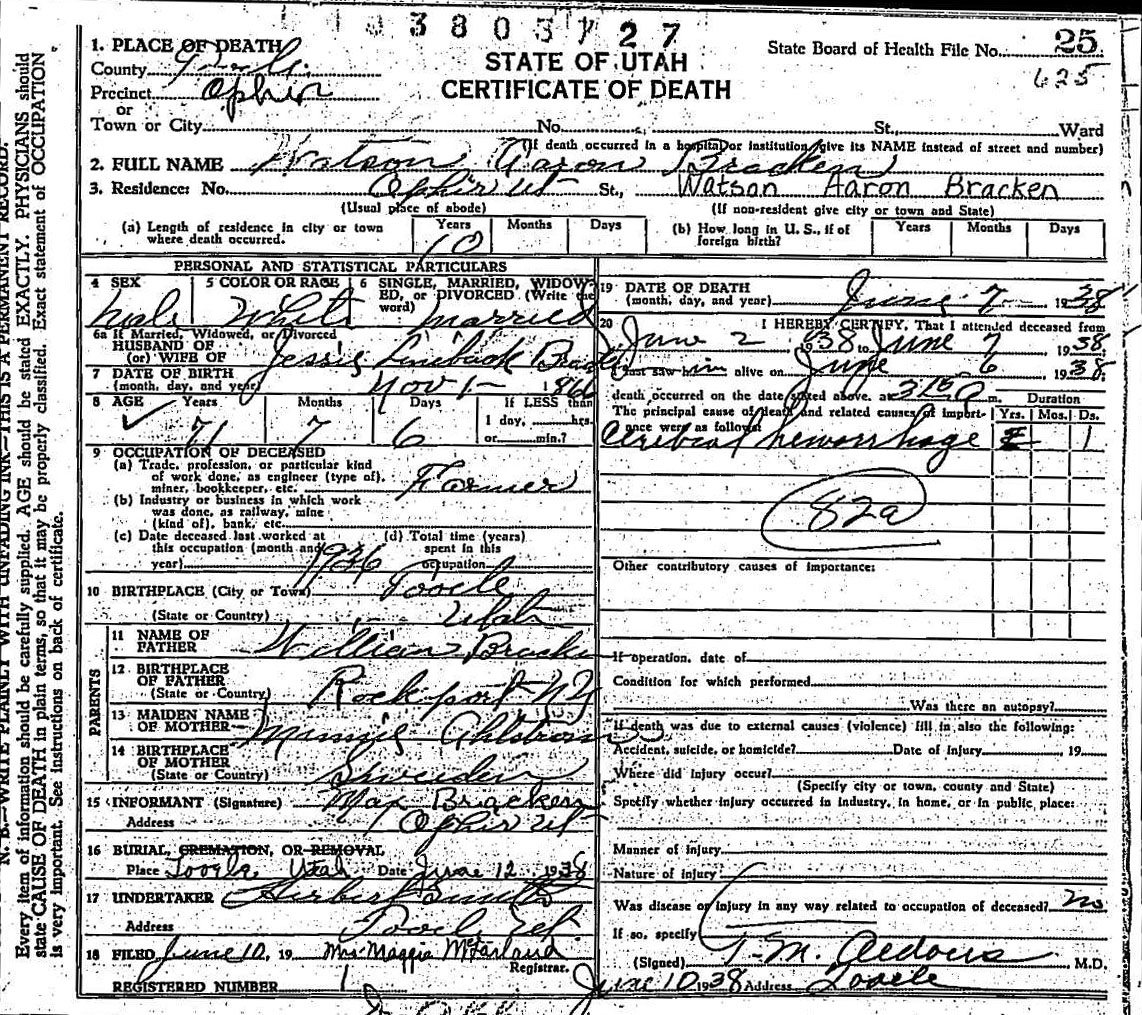 3 8 0 3 7 2 7
1. PLACE OF DEATH
STATE OF UTAH
CERTIFICATE OF DEATH
State Board of Health File No. 25
625
County Tooele
Precinct Ophir
or
Town or City No. St., Ward
(If death occurred in a hospital or institution give its NAME instead of street and number)
2. FULL NAME Watson Aaron Bracken
3. Residence: No. Ophir Ut St., Watson Aaron Bracken
(Usual place of abode) (If non-resident give city or town and State)
(a) Length of residence in city or town where death occurred. Years 10 Months Days
(b) How long in U. S., if of foreign birth? Years Months Days
PERSONAL AND STATISTICAL PARTICULARS
4 SEX 5 COLOR OR RACE 6 SINGLE, MARRIED, WIDOWED, or DIVORCED (Write the word)
Male White Married
6a If Married, Widowed, or Divorced
HUSBAND OF
(or) WIFE OF Jessie
7 DATE OF BIRTH
(month, day, and year) Nov 1 - 1866
8 AGE Years Months Days If LESS than
1 day, hrs.
71 7 6 or min.?
9 OCCUPATION OF DECEASED
(a) Trade, profession, or particular kind
of work done, as engineer (type of),
miner, bookkeeper, etc. Farmer
(b) Industry or business in which work
was done, as railway, mine
(kind of), bank, etc.
(c) Date deceased last worked at
this occupation (month and
year) 1936
(d) Total time (years)
spent in this
occupation
10 BIRTHPLACE (City or Town) Tooele
(State or Country) Utah
PARENTS
11 NAME OF
FATHER William Bracken
12 BIRTHPLACE
OF FATHER
(State or Country) Rockport NY
13 MAIDEN NAME
OF MOTHER Minnie Ahlstrom
14 BIRTHPLACE
OF MOTHER
(State or Country) Sweeden
15 INFORMANT (Signature) Max Bracken
Address Ophir Ut
16 BURIAL, CREMATION, OR REMOVAL
Place Tooele Utah Date June 12 1938
17 UNDERTAKER Herbert
Address Tooele
18 FILED June 10, 19 Mrs. Maggie McFarland
Registrar.
REGISTERED NUMBER 1
19 DATE OF DEATH
(month, day, and year) June 7 - 1938
20 I HEREBY CERTIFY, That I attended deceased from
June 2 1938 to June 7 1938
I last saw him alive on June 6 1938
death occurred on the date stated above, at m. Duration
The principal cause of death and related causes of importance were as follows: Yrs. Mos. Ds.
Cerebral hemorrhage 1
82a
Other contributory causes of importance:
If operation, date of
Condition for which performed
Was there an autopsy?
If death was due to external causes (violence) fill in also the following:
Accident, suicide, or homicide? Date of Injury 19
Where did injury occur?
(Specify city or town, county and State)
Specify whether injury occurred in industry, in home, or in public place:
Manner of injury
Nature of injury
Was disease or injury in any way related to occupation of deceased? no
If so, specify
(Signed) T. M. Aldous M.D.
June 10 1938 Address Tooele
N. B.—WRITE PLAINLY WITH UNFADING INK—THIS IS A PERMANENT RECORD.
Every item of information should be carefully supplied. AGE should be stated EXACTLY. PHYSICIANS should
state CAUSE OF DEATH in plain terms, so that it may be properly classified. Exact statement of OCCUPATION
is very important. See instructions on back of certificate.